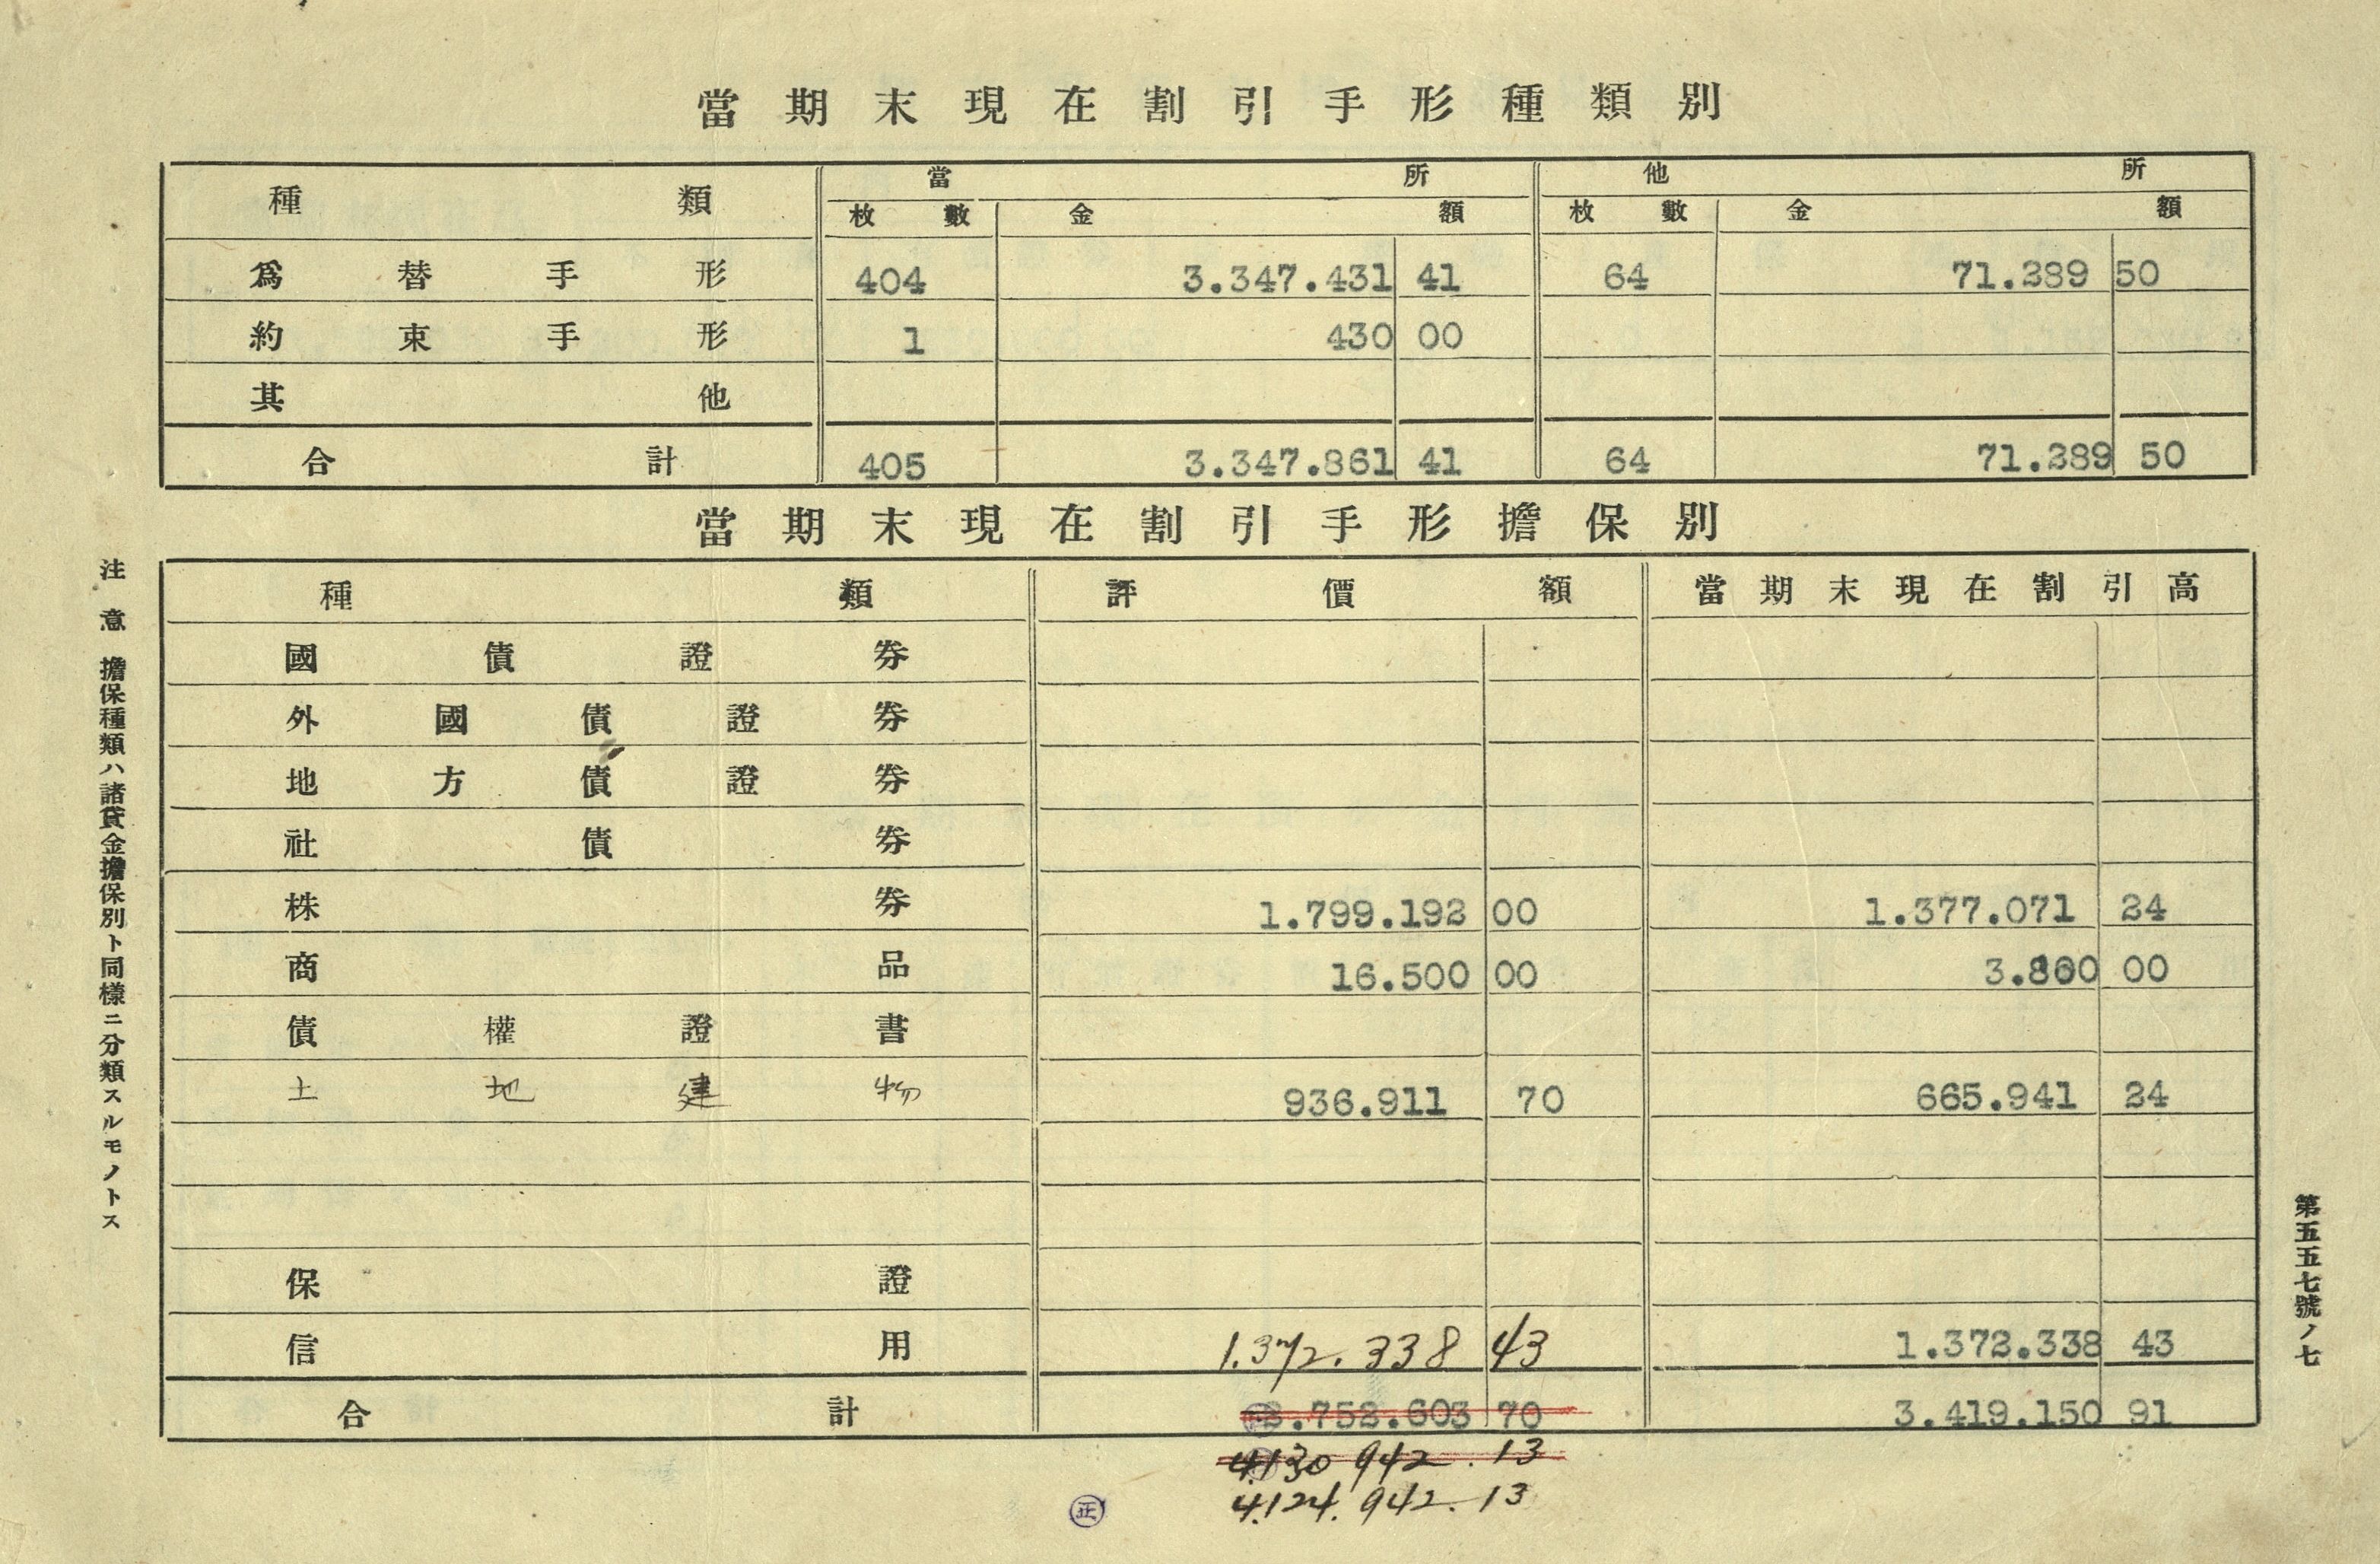 當期末現在割引手形種類別
種類 當所 他所
枚數 金額 枚數 金額
爲替手形 404 3.347.431 41 64 71.289 50
約束手形 1 430 00
其他
合計 405 3.347.861 41 64 71.289 50
當期末現在割引手形擔保別
種類 評價額 當期末現在割引高
國債證券
外國債證券
地方債證券
社債券
株券 1.799.192 00 1.377.071 24
商品 16.500 00 3.800 00
債權證書
土地建物 936.911 70 665.941 24
保證
信用 1.372.338 43 1.372.338 43
合計 2.752.603 70 3.419.150 91
4.130 942.13
正 4.124.942.13
注意 擔保種類ハ諸貸金擔保別ト同樣ニ分類スルモノトス
第五五七號ノ七